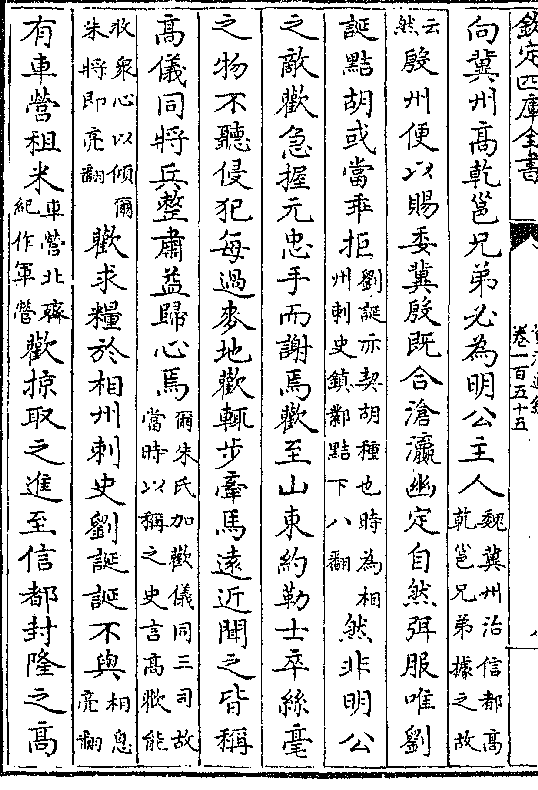 欽定四庫全書
卷一百五十五
八
向冀州高乾邕兄弟必為明公主人魏冀州治信都高乾邕兄弟據之故
云然殷州便以賜委冀殷既合滄瀛幽定自然弭服唯劉
誕黠胡或當乖拒劉誕亦契胡種也時為相州刺史鎮鄴黠下八翻然非明公
之敵歡急握元忠手而謝焉歡至山東約勒士卒絲毫
之物不聽侵犯每過麥地歡輒步牽馬遠近聞之皆稱
高儀同將兵整肅益歸心焉爾朱氏加歡儀同三司故當時以稱之史言高歡能
收衆心以傾爾朱將即亮翻歡求糧於相州刺史劉誕誕不與相息亮翻
有車營租米車營北齊紀作軍營歡掠取之進至信都封隆之高